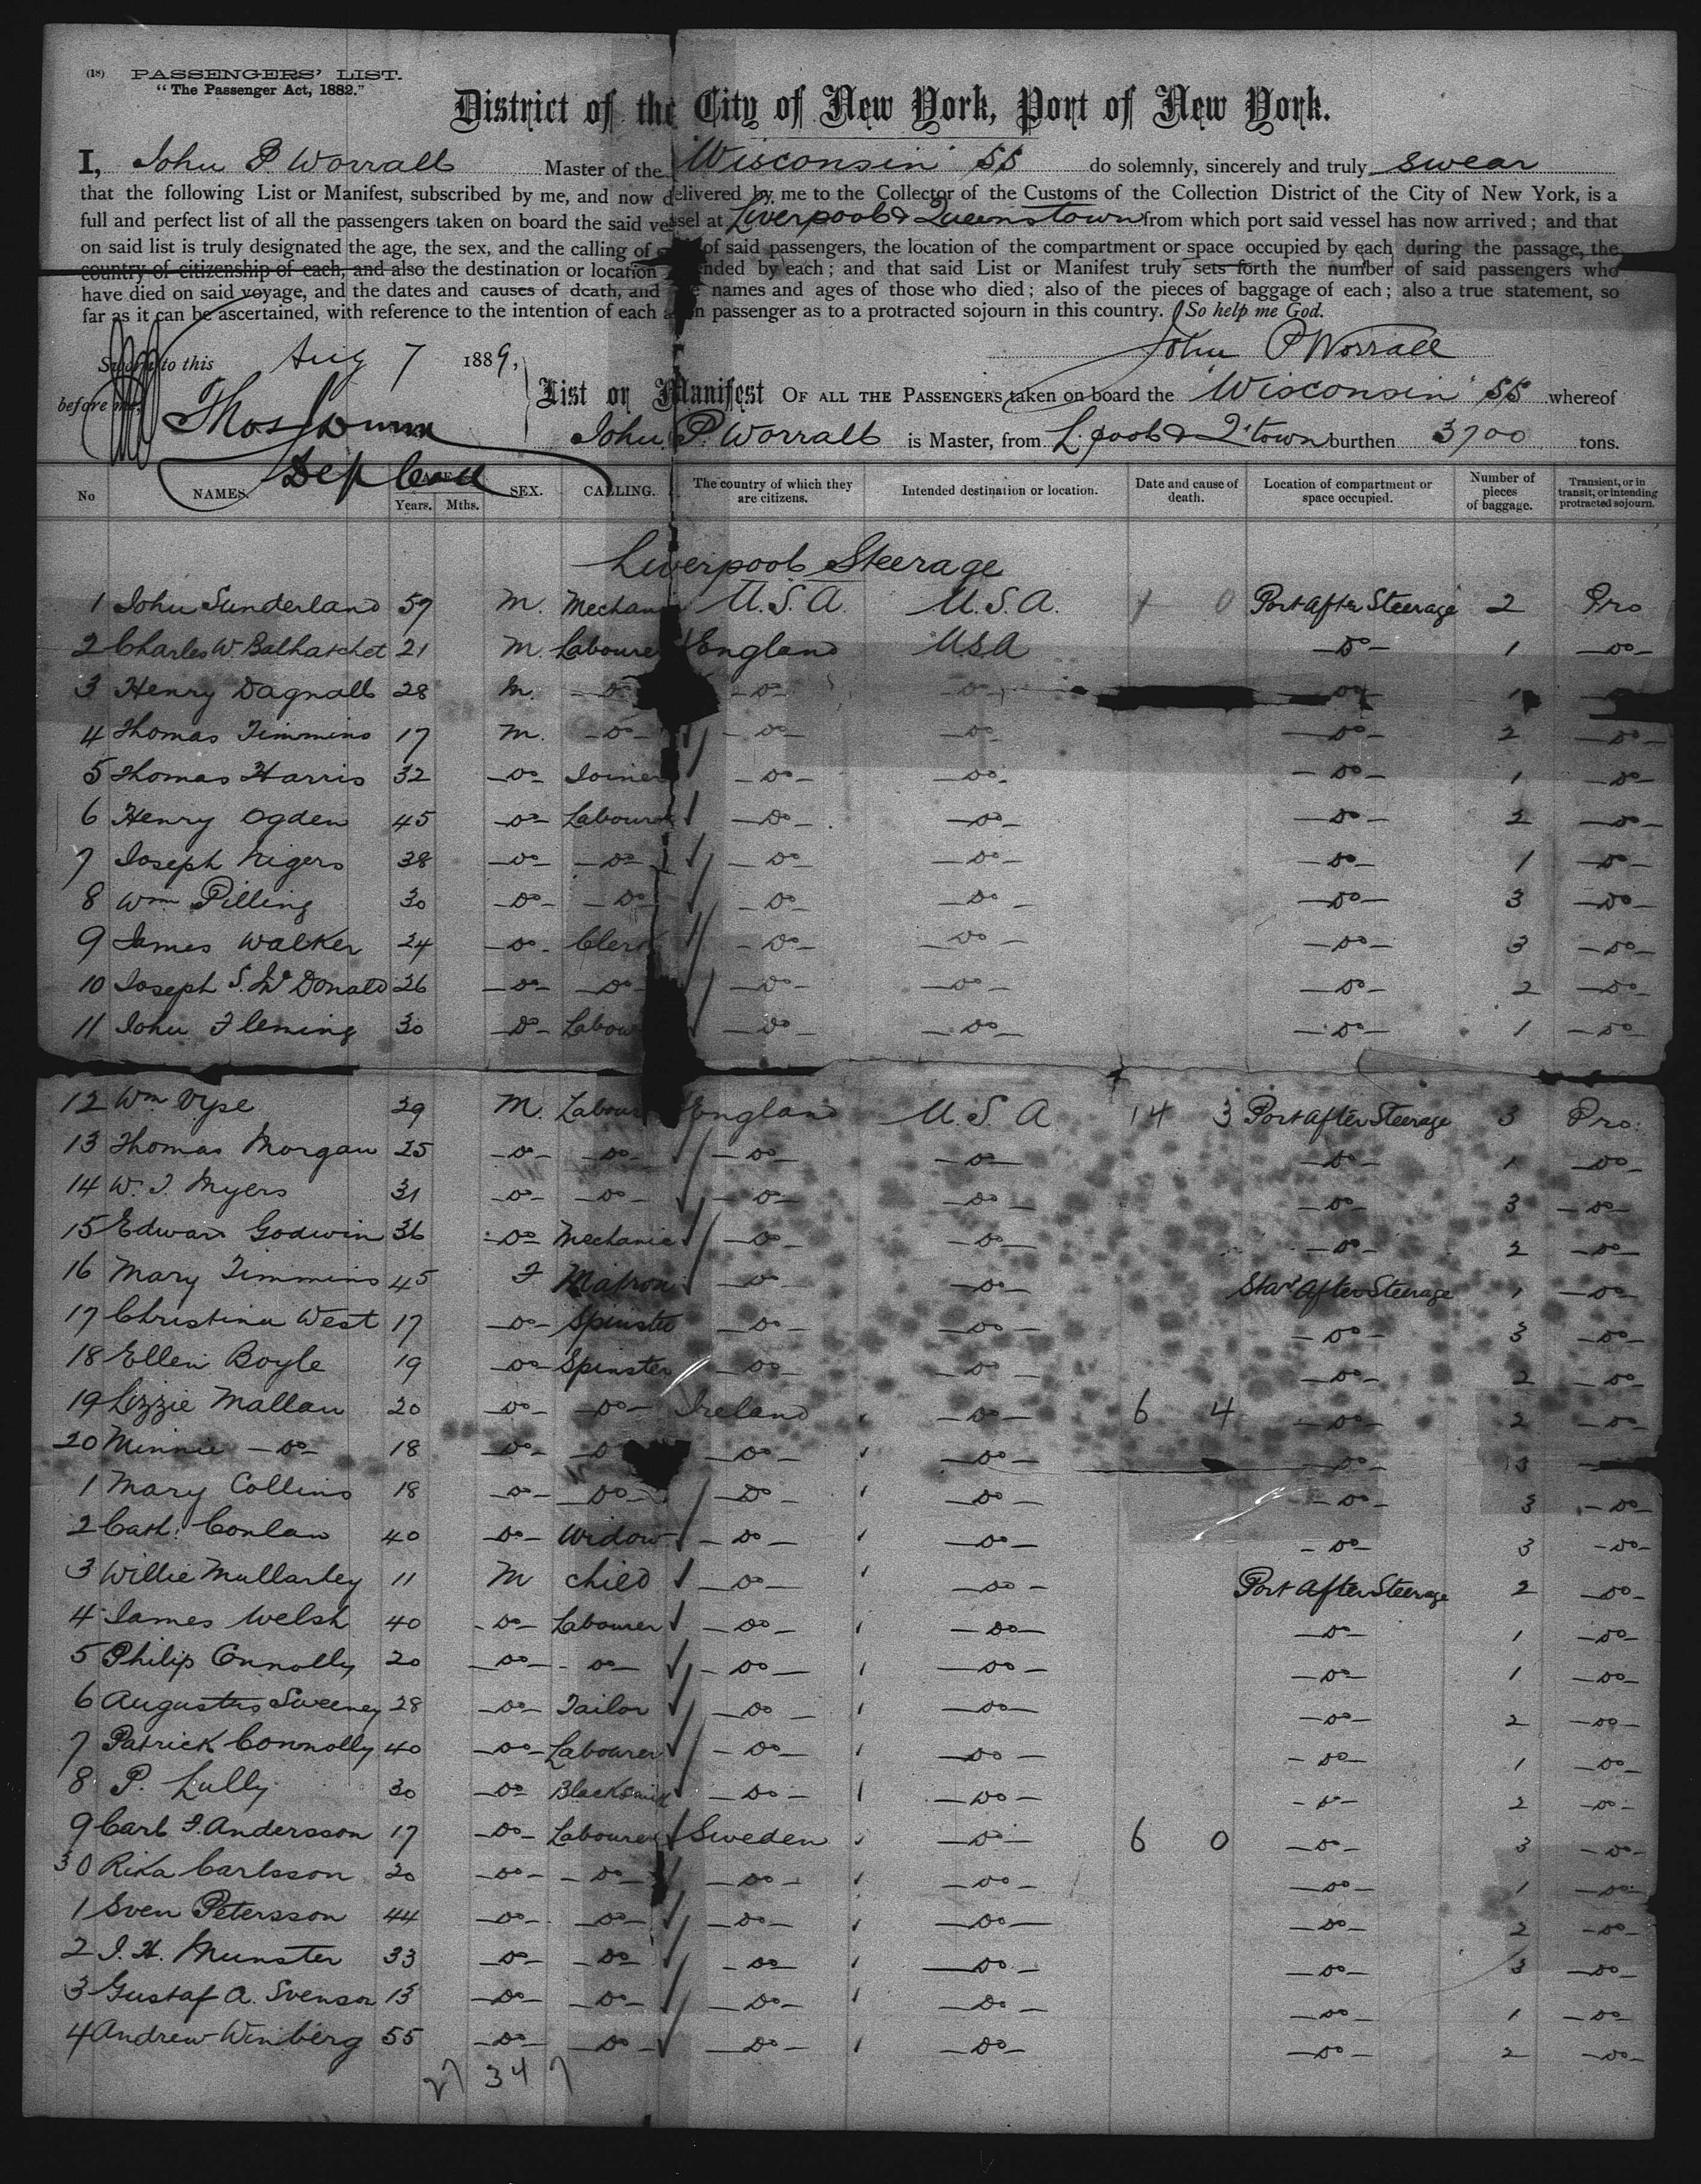 (18) PASSENGERS' LIST.
"The Passenger Act, 1882."
District of the City of New York, Port of New York.
I, John P Worrall Master of the Wisconsin SS do solemnly, sincerely and truly swear
that the following List or Manifest, subscribed by me, and now delivered by me to the Collector of the Customs of the Collection District of the City of New York, is a
full and perfect list of all the passengers taken on board the said vessel at Liverpool & Queenstown from which port said vessel has now arrived; and that
on said list is truly designated the age, the sex, and the calling of of said passengers, the location of the compartment or space occupied by each during the passage, the
country of citizenship of each, and also the destination or location ended by each; and that said List or Manifest truly sets forth the number of said passengers who
have died on said voyage, and the dates and causes of death, and names and ages of those who died; also of the pieces of baggage of each; also a true statement, so
far as it can be ascertained, with reference to the intention of each passenger as to a protracted sojourn in this country. So help me God.
Sworn to this Aug 7 1889, John P Worrall
before me, Thos Dunn
Dep
List or Manifest OF ALL THE PASSENGERS taken on board the Wisconsin SS whereof
John P. Worrall is Master, from L.pool & Q'town burthen 3700 tons.
No NAMES. AGE Years. Mths. SEX. CALLING. The country of which they are citizens. Intended destination or location. Date and cause of death. Location of compartment or space occupied. Number of pieces of baggage. Transient, or in transit, or intending protracted sojourn.
Liverpool Steerage
1 John Sunderland 59 M. Mechan U.S.A. U.S.A. 1 0 Port After Steerage 2 Pro
2 Charles W. Balhatchet 21 M. Laboure England USA -Do- 1 -Do-
3 Henry Dagnall 28 M. -Do -Do- -Do- -Do- 1
4 Thomas Timmins 17 M. -Do- -Do- -Do- -Do- 2 -Do-
5 Thomas Harris 32 -Do- Joiner -Do- -Do- -Do- 1 -Do-
6 Henry Ogden 45 -Do- Labourer -Do- -Do- -Do- 2 -Do-
7 Joseph Nigers 38 -Do- -Do- -Do- -Do- -Do- 1 -Do-
8 Wm Pilling 30 -Do- -Do- -Do- -Do- -Do- 3 -Do-
9 James Walker 24 -Do- Clerk -Do- -Do- -Do- 3 -Do-
10 Joseph S. McDonald 26 -Do- -Do- -Do- -Do- -Do- 2 -Do-
11 John Fleming 30 -Do- Labou -Do- -Do- -Do- 1 -Do-
12 Wm Vyse 29 M. Labour England U.S.A 14 3 Port After Steerage 3 Pro.
13 Thomas Morgan 25 -Do- -Do- -Do- -Do- -Do- 1 -Do-
14 W. J. Myers 31 -Do- -Do- -Do- -Do- -Do- 3 -Do-
15 Edward Godwin 36 -Do- Mechanic -Do- -Do- -Do- 2 -Do-
16 Mary Timmins 45 F Matron -Do- -Do- Star'd After Steerage 1 -Do-
17 Christina West 17 -Do- Spinster -Do- -Do- -Do- 3 -Do-
18 Ellen Boyle 19 -Do- Spinster -Do- -Do- -Do- 2 -Do-
19 Lizzie Mallan 20 -Do- -Do- Ireland -Do- 6 4 -Do- 2 -Do-
20 Minnie -Do- 18 -Do- -Do -Do- -Do- -Do- 3
1 Mary Collins 18 -Do- -Do- -Do- -Do- -Do- 3 -Do-
2 Cath: Conlan 40 -Do- Widow -Do- -Do- -Do- 3 -Do-
3 Willie Mullarley 11 M Child -Do- -Do- Port After Steerage 2 -Do-
4 James Welsh 40 -Do- Labourer -Do- -Do- -Do- 1 -Do-
5 Philip Connolly 20 -Do- -Do- -Do- -Do- -Do- 1 -Do-
6 Augustus Sweeney 28 -Do- Tailor -Do- -Do- -Do- 2 -Do-
7 Patrick Connolly 40 -Do- Labourer -Do- -Do- -Do- 1 -Do-
8 P. Lully 30 -Do- Blacksmith -Do- -Do- -Do- 2 -Do-
9 Carl F. Andersson 17 -Do- Labourer Sweden -Do- 6 0 -Do- 3 -Do-
30 Rika Carlsson 20 -Do- -Do- -Do- -Do- -Do- 1 -Do-
1 Sven Petersson 44 -Do- -Do- -Do- -Do- -Do- 2 -Do-
2 J. H. Munster 33 -Do- -Do- -Do- -Do- -Do- 3 -Do-
3 Gustaf A. Svenson 13 -Do- -Do- -Do- -Do- -Do- 1 -Do-
4 Andrew Winberg 55 -Do- -Do- -Do- -Do- -Do- 2 -Do-
27 34 7